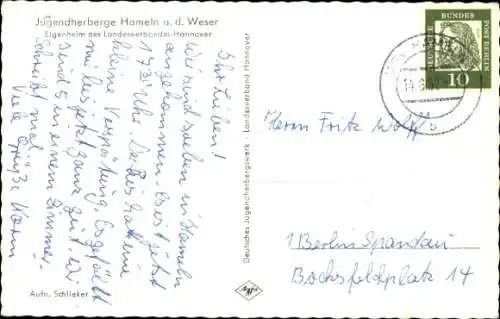 Jugendherberge Hameln a. d. Weser
Eigenheim des Landesverbandes Hannover
Ihr Lieben!
Wir sind soeben in Hameln
angekommen. Es ist jetzt
17 30 Uhr. Der Bus hatte eine
kleine Verspätung. Es gefällt
mir bis jetzt ganz gut. Wir
sind 5 in einem Zimmer.
Schreibt mal
Viele Grüße Karin
Aufn. Schlieker
Deutsches Jugendherbergswerk - Landesverband Hannover
Agfa
DEUTSCHE BUNDESPOST BERLIN
10
Herrn Fritz Wolff
1 Berlin Spandau
Bocksfeldplatz 14